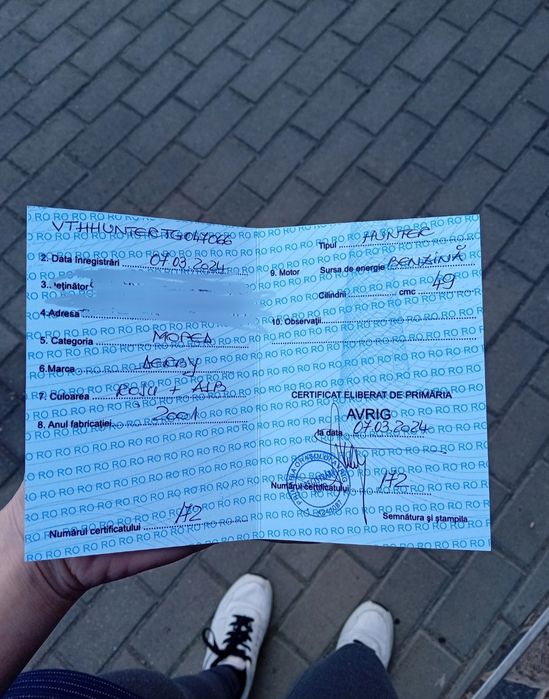 VTHHUNTERTG047066
2. Data înregistrări 07.03.2024
3. eținător
4. Adresa
5. Categoria MOPED
6. Marca DERBY
7. Culoarea ROȘU + ALB
8. Anul fabricației 2001
Numărul certificatului 172
Tipul HUNTER
9. Motor Sursa de energie BENZINĂ
Cilindrii 49 cmc
10. Observații
CERTIFICAT ELIBERAT DE PRIMĂRIA
AVRIG
la data 07.03.2024
Numărul certificatului 172
Semnătura și ștampila